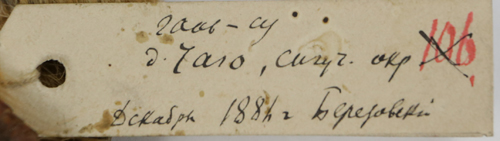 гань-су
д. Чаго, сигуч. окр
106
Декабрь 1884 г Березовский